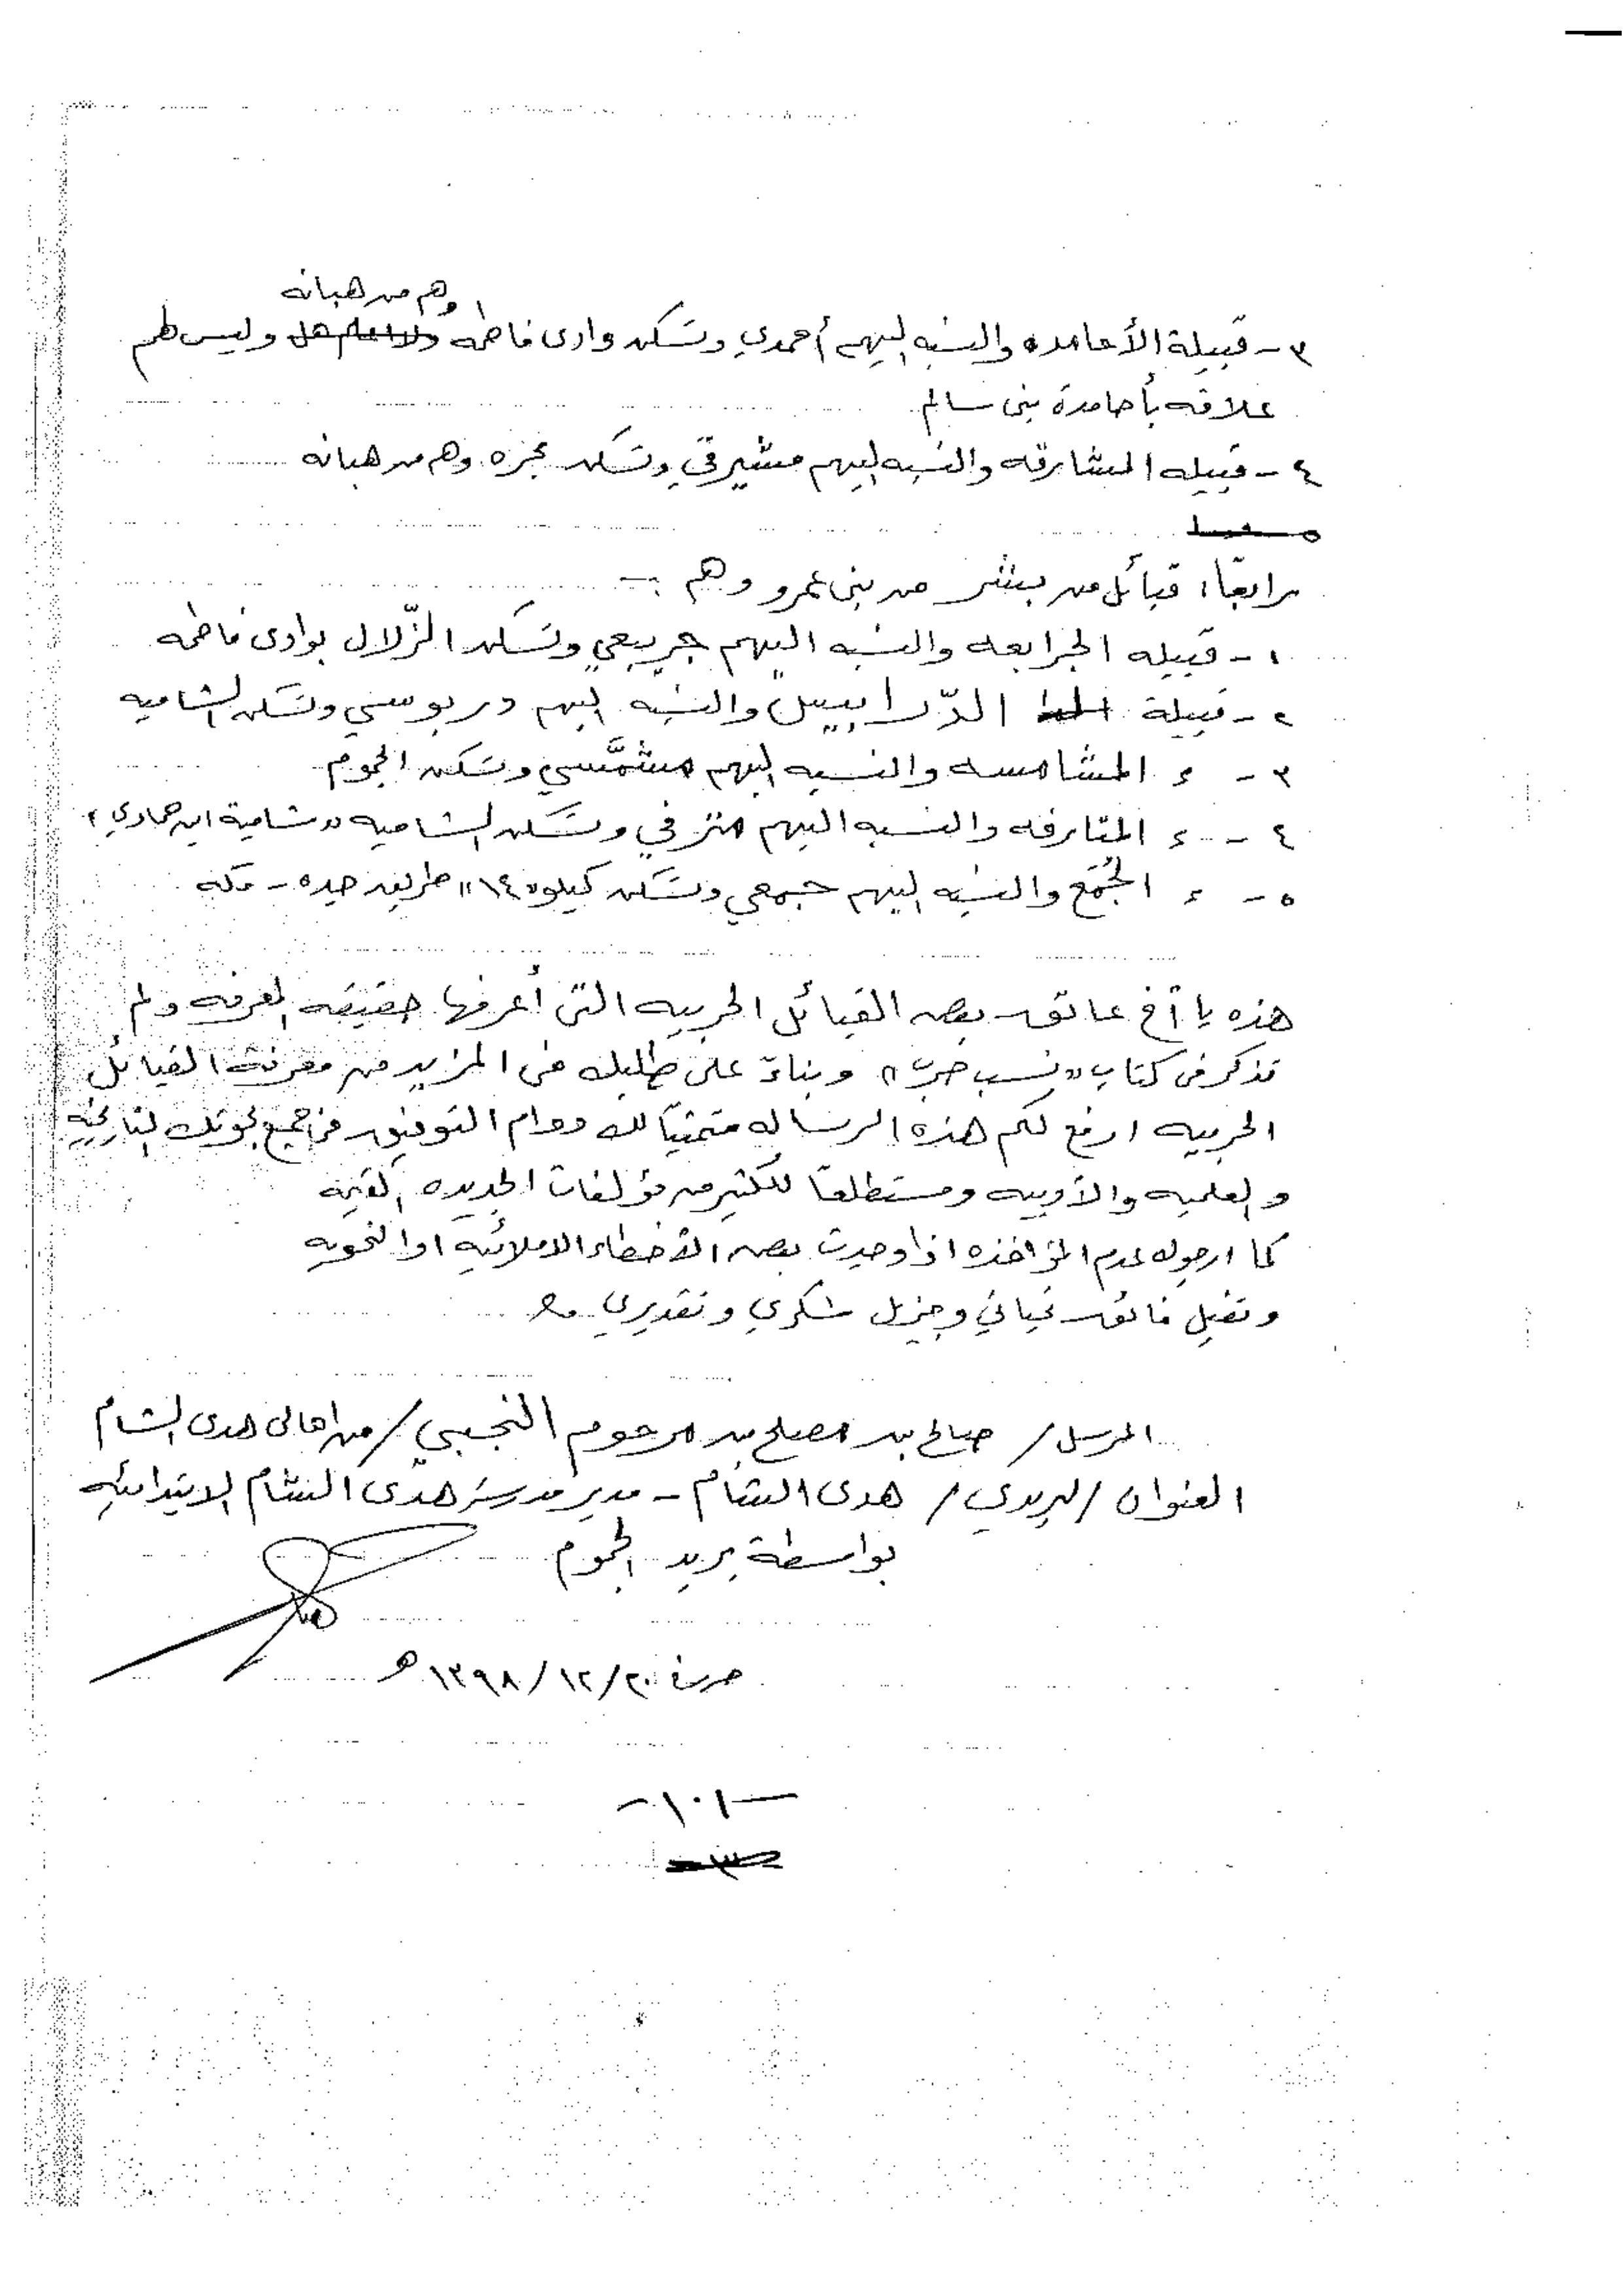 وهم من هبانه
٣ - قبيلة الأحامده والنسبه إليهم أحمدي وتسكن وادى فاطمه وليس لهم
علاقه بأحامدة بنى سالم
٤ - قبيله المشارقه والنسبه إليهم مشيرقي وتسكن بحره وهم من هبانه
رابعًا، قبائل من بشر من بنى عمرو وهم :-
١ - قبيله الجرابعه والنسبه اليهم جريبعي وتسكن الزّلال بوادى فاطمه
٢ - قبيلة الدّرابيس والنسبه إليهم دربوسي وتسكن الشاميه
٣ - ء المشامسه والنسبه إليهم مشمَّسي وتسكن الجموم
٤ - ء المتارفه والنسبه اليهم مترفي وتسكن الشاميه "شامية ابن حمادي"
٥ - ء الجُمَع والنسبه إليهم جمعي وتسكن كيلو "١٤" طريق جده - مكه
هذه يا أخ عاتق بعض القبائل الحربيه التى أعرفها حقيقه المعرفه ولم
تذكر فى كتاب "نسب حرب" وبناءً على طلبك فى المزيد من معرفة القبائل
الحربيه ارفع لكم هذه الرساله متمنيًا لك دوام التوفيق فى جميع بحوثك التاريخيه
والعلميه والأدبيه ومستطلعًا للكثير من مؤلفات الجديده القيمه
كما ارجو عدم المؤاخذه اذا وجدت بعض الأخطاء الاملائيه او النحويه
وتقبل فائق تحياتي وجزيل شكري وتقديري
المرسل / صالح بن مصلح بن مرحوم / من اهالى هدى الشام
العنوان / البريدي / هدى الشام - مدير مدرسة هدى الشام الابتدائيه
بواسطة بريد الجموم
حرر فى ٢٠/١٢/١٣٩٨ هـ
- ١٠١ -